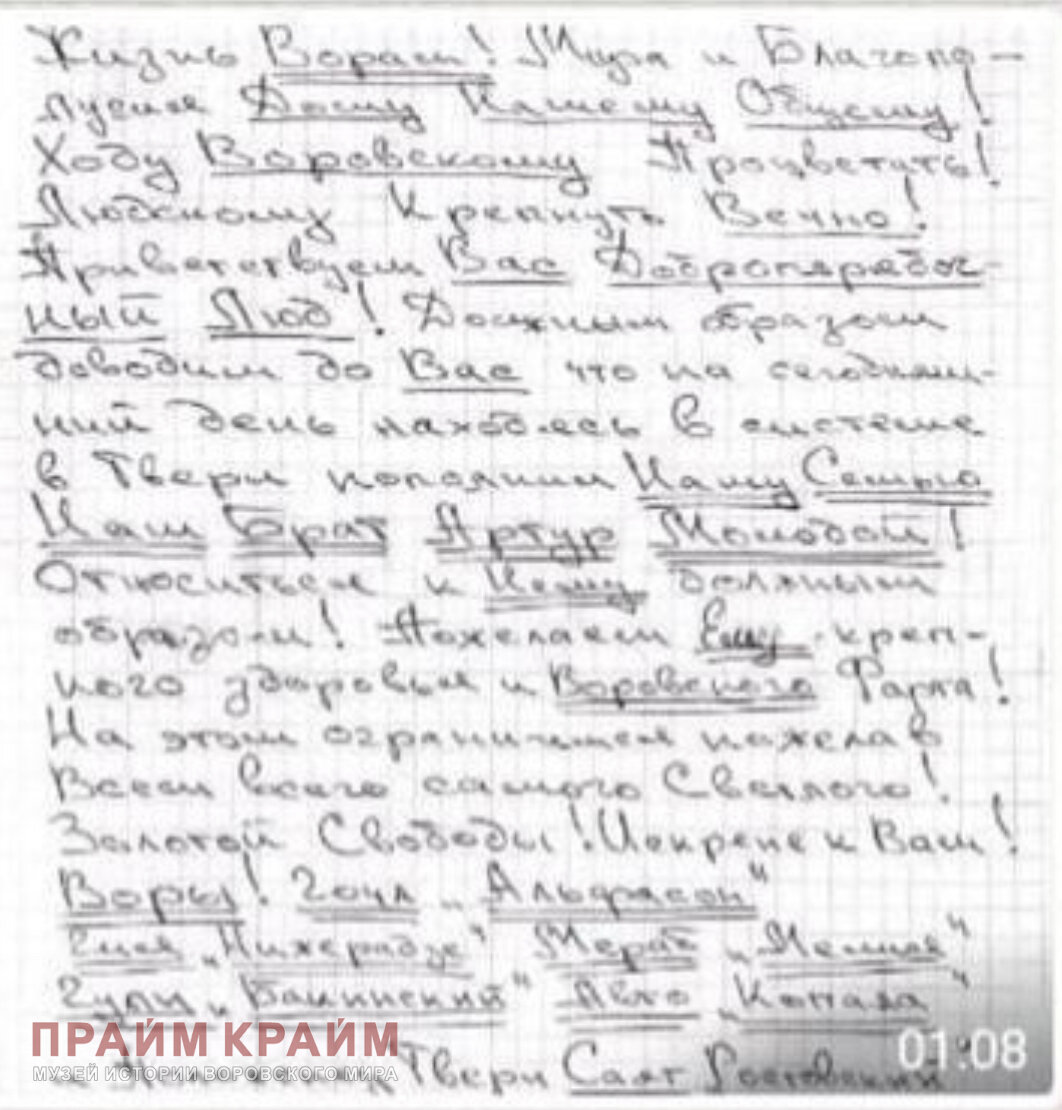 Жизнь Ворам! Мира и Благопо-
лучия Дому Нашему Общему!
Ходу Воровскому Процветать!
Людскому Крепнуть Вечно!
Приветствуем Вас Добропорядоч-
ный Люд! Должным образом
доводим до Вас что на сегодняш-
ний день находясь в системе
в Твери пополнил Нашу Семью
Наш Брат Артур Молодой!
Относиться к Нему должным
образом! Пожелаем Ему креп-
кого здоровья и Воровского Фарта!
На этом ограничимся пожелав
Всем всего самого Светлого!
Золотой Свободы! Искрене к Вам!
Воры! Гочл "Альфасон"
"Пижерадзе" Мераб
Гули "Бакинский" Авто "Копала"
ПРАЙМ КРАЙМ
01:08
МУЗЕЙ ИСТОРИИ ВОРОВСКОГО МИРА
Твери Саят Ростовский